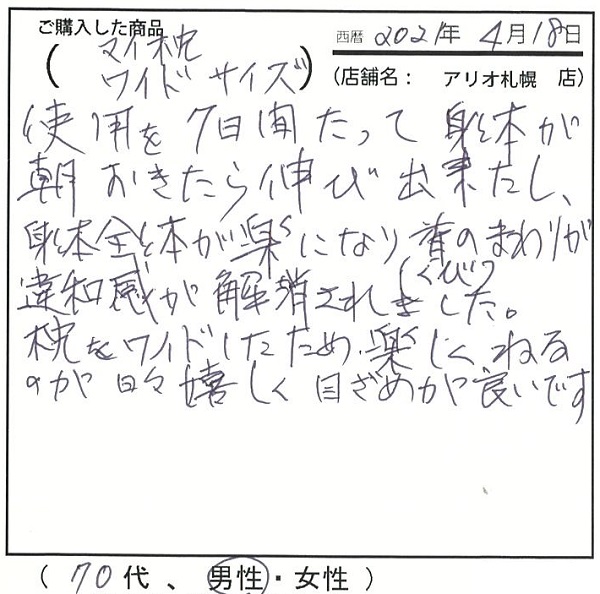 ご購入した商品
西暦 2021年 4月18日
(マイ枕
ワイドサイズ)
(店舗名： アリオ札幌 店)
使用を7日間たって身体が
朝おきたら伸び出来たし、
身体全体が楽になり首のまわりが
(くび)
違和感が解消されました。
枕をワイドしたため、楽しくねる
のが日々嬉しく目ざめが良いです
(70代、男性・女性)